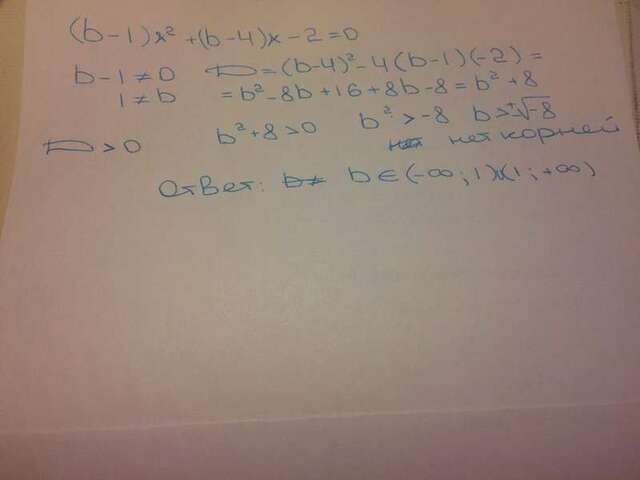 (b-1)x² + (b-4)x - 2 = 0
b-1 ≠ 0 D = (b-4)² - 4(b-1)(-2) =
1 ≠ b = b² - 8b + 16 + 8b - 8 = b² + 8
D > 0 b² + 8 > 0 b² > -8 b > ±√-8
нет корней
Ответ: b ∈ (-∞; 1) (1; +∞)